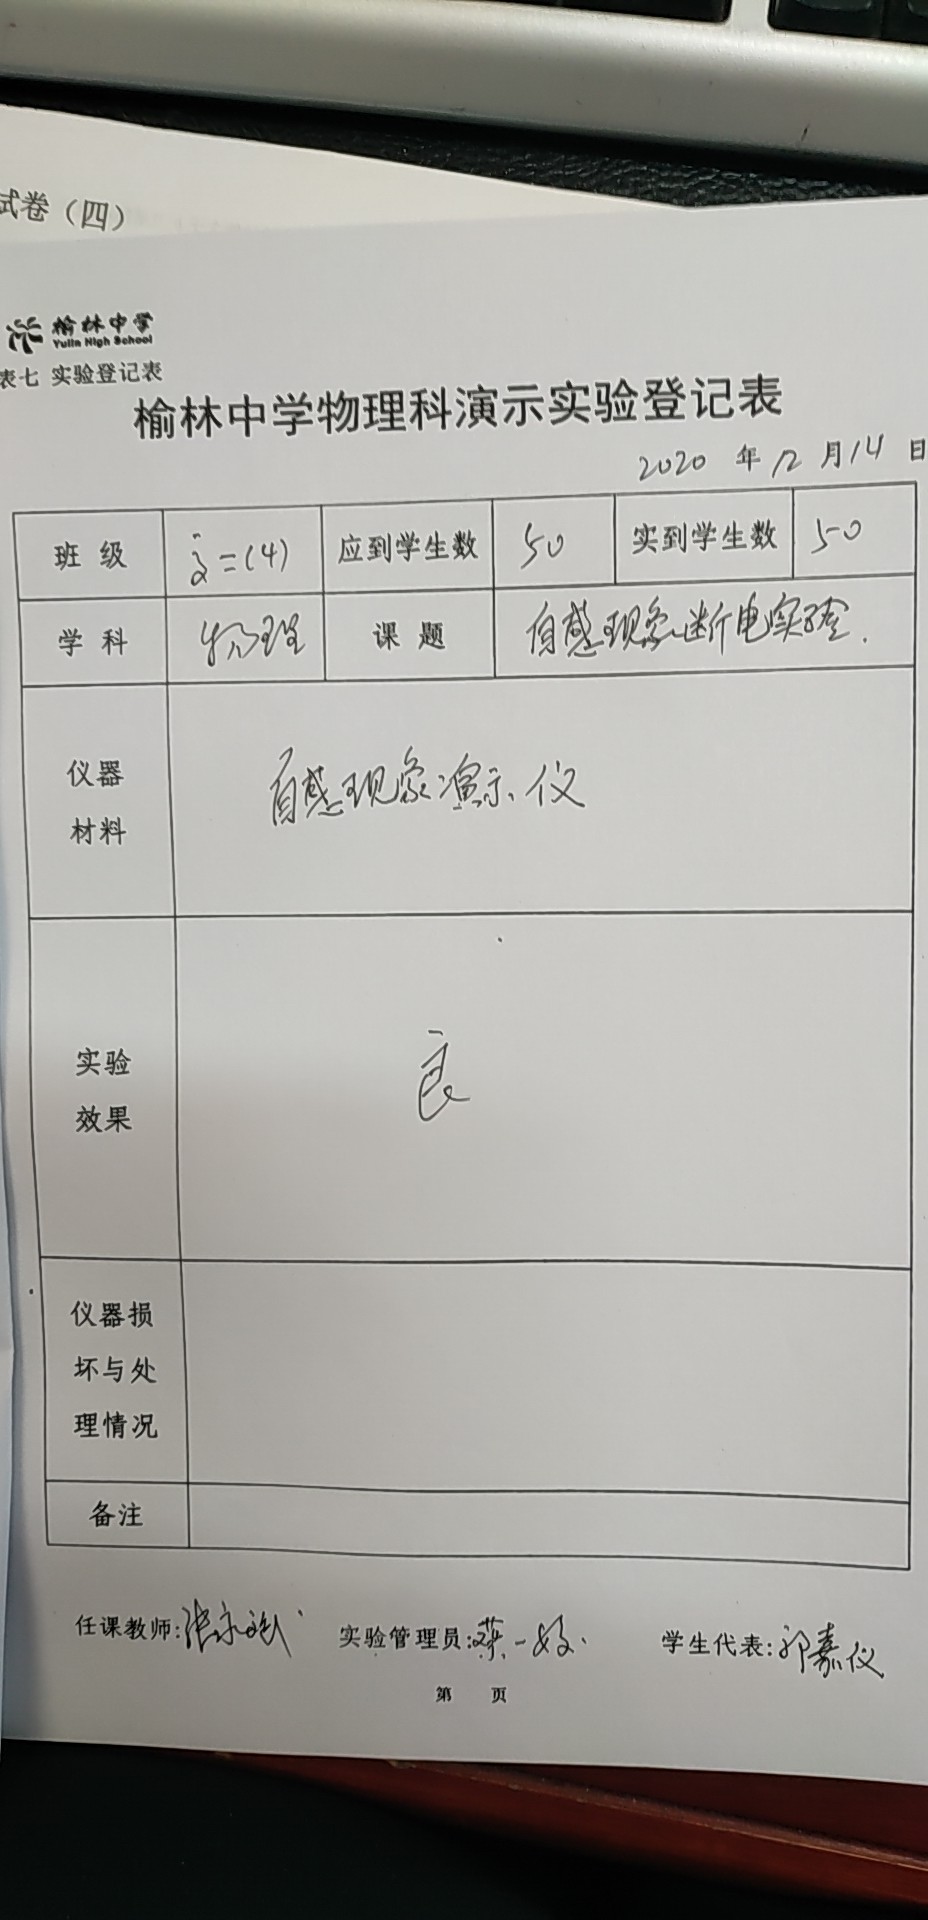 试卷（四）
榆林中学
Yulin High School
表七 实验登记表
榆林中学物理科演示实验登记表
2020 年 12 月 14 日
班 级 高二(4) 应到学生数 50 实到学生数 50
学 科 物理 课 题 自感现象断电实验.
仪器
材料
自感现象演示仪
实验
效果
良
仪器损
坏与处
理情况
备注
任课教师:张永 实验管理员:蔡一 学生代表:嘉仪
第 页